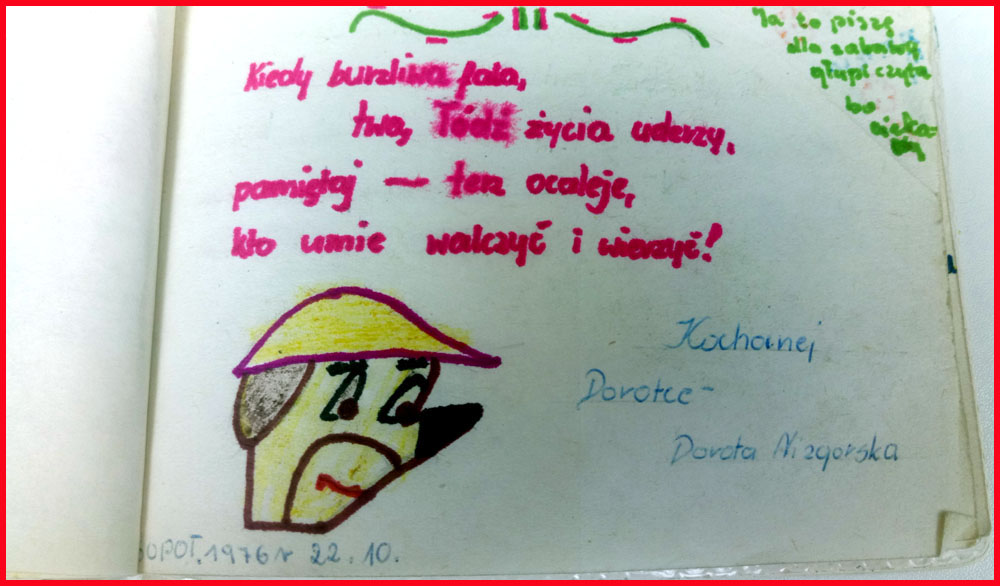 Kiedy burzliwa fala,
twą łódź życia uderzy.
pamiętaj — ten ocaleje,
kto umie walczyć i wierzyć!
Ja to piszę
dla zabawy
głupi czyta
bo cieka-
wy
Kochanej
Dorotce -
Dorota Nizgorska
SOPOT. 1976 r 22.10.